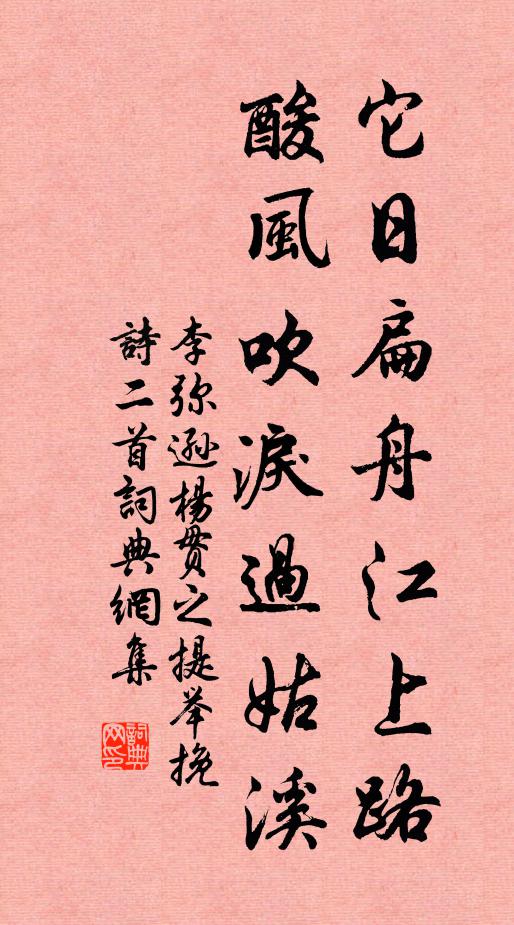 它日扁舟江上路
酸風吹淚過姑溪
李弥遜楊貫之提举挽
詩二首詞典網集
詞典网印